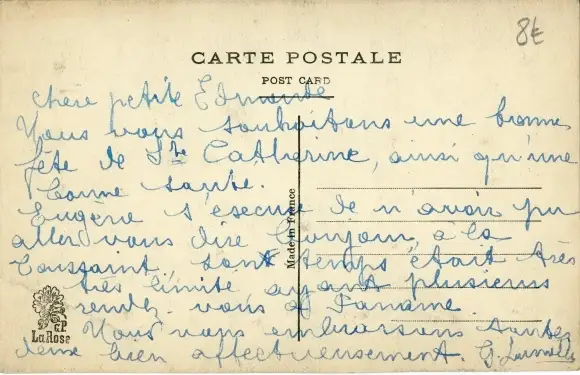 8€
CARTE POSTALE
POST CARD
Chère petite Edmonde
Nous vous souhaitons une bonne
fête de Ste Catherine, ainsi qu'une
bonne santé.
Eugène s'excuse de n'avoir pu
aller vous dire bonjour à la
Toussaint. son temps était très
très limité ayant plusieurs
rendez-vous à
Nous vous embrassons toutes
deux bien affectueusement. G.
Made in France
GP
La Rose